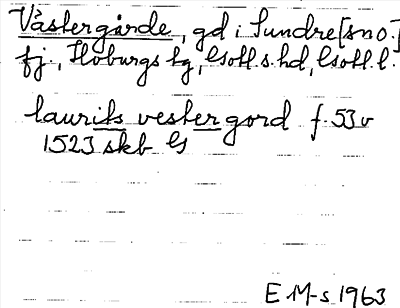 Västergårde, gd i Sundre [sno.]
fj., Hoburgs tg, Gotl. s. hd, Gotl. l.
laurits vester gord f. 53v
1523 skb G
E M-s 1963